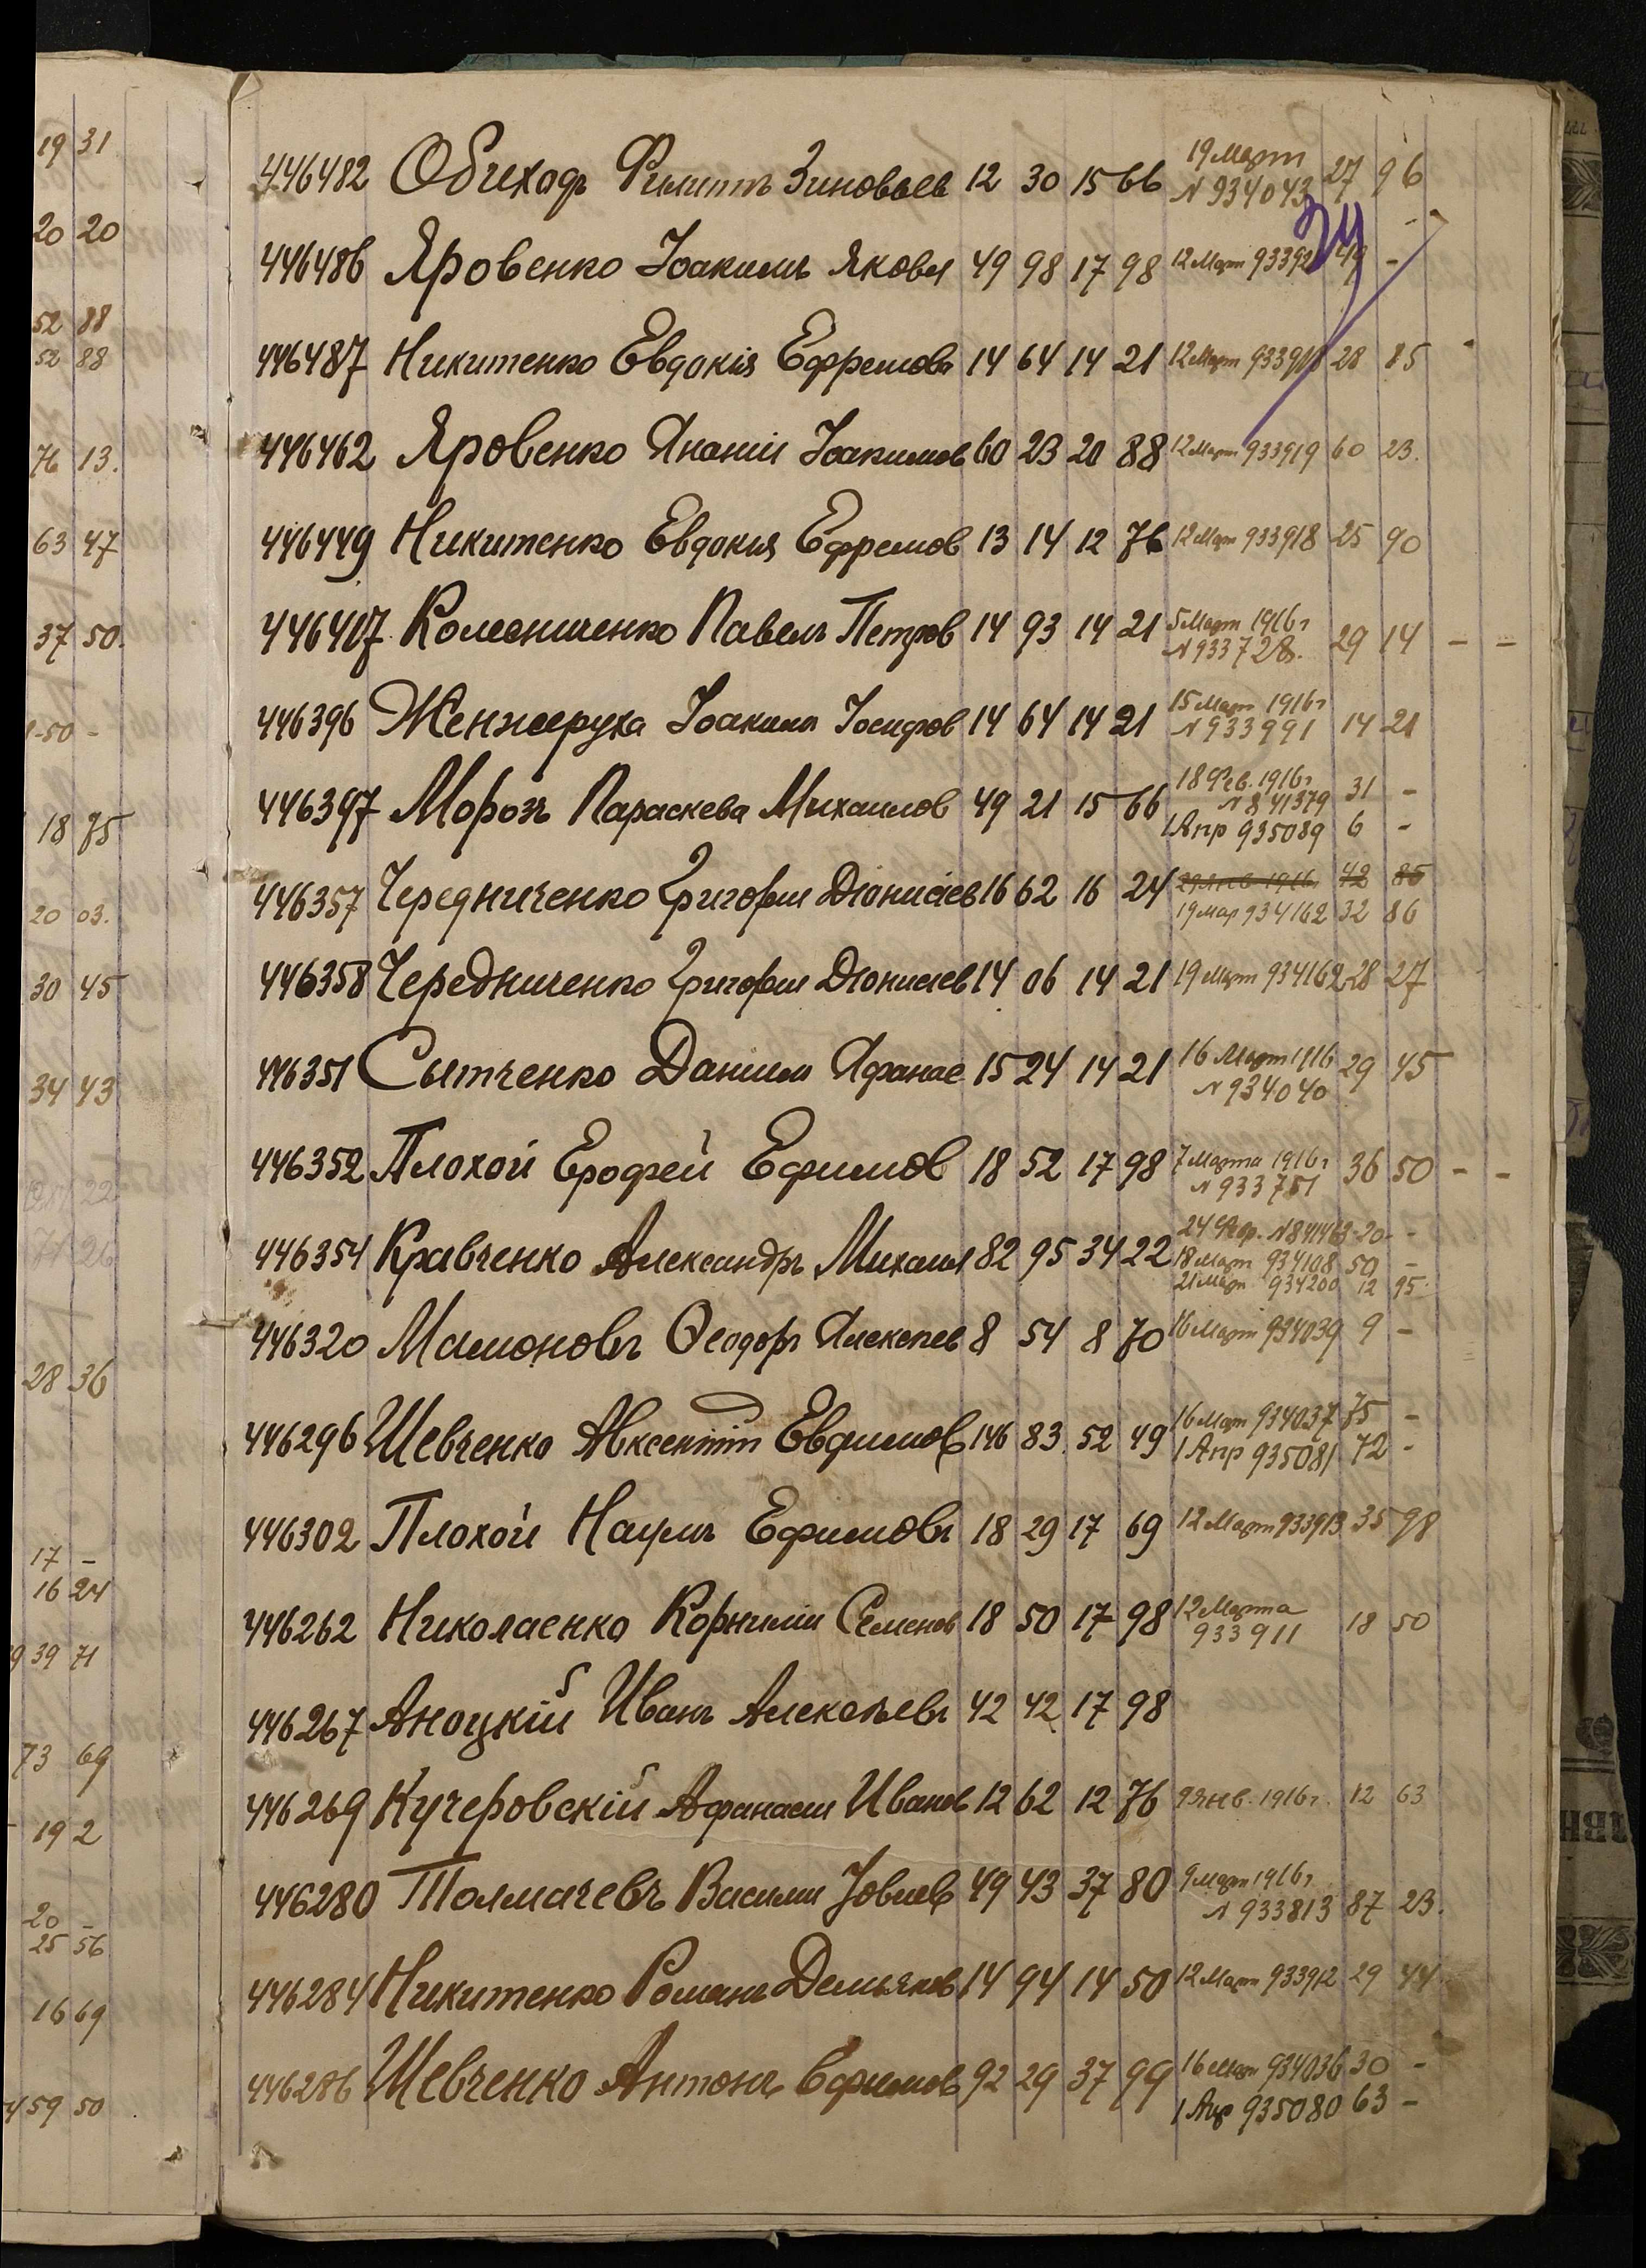 19 31
20 20
52 88
52 88
76 13.
63 47
37 50.
50 -
18 75
20 03.
30 45
34 43
28 36
17 -
16 24
39 71
73 69
19 2
20 -
25 56
16 69
59 50
19 Март
446482 Обиходъ Филиппъ Зиновьевъ 12 30 15 66 N 934043 27 96
34
446486 Яровенко Іоакимъ Яковл 49 98 17 98 12 Март 49 -
446487 Никитенко Евдокія Ефремова 14 64 14 21 12 Март 28 85
446462 Яровенко Ананій Іоакимов 60 23 20 88 12 Март 933919 60 23.
446449 Никитенко Евдокія Ефремов 13 14 12 76 12 Март 933918 25 90
446417 Колесниченко Павелъ Петров 14 93 14 21 5 Март 1916 г
N 933728. 29 14 - -
446396 Женжеруха Іоакимъ Іосифов 14 64 14 21 15 Март 1916 г
N 933991 14 21
446397 Морозъ Параскева Михаилов 49 21 15 66 18 Фев. 1916 г
N 841379 31 -
1 Апр 935089 6 -
446357 Чередниченко Григорій Діонисіев 16 62 16 24 29 Янв 1916 42 86
19 Мар 934162 32 86
446358 Чередниченко Григорій Діонисіев 14 06 14 21 19 Март 934162 28 27
446351 Сытченко Даніилъ Афанас 15 24 14 21 16 Март 1916 29 45
N 934040
446352 Плохой Ерофей Ефимов 18 52 17 98 7 Марта 1916 г 36 50 - -
N 933751
446354 Кравченко Александръ Михаил 82 95 34 22 24 Февр. N 841463 20 -
18 Март 934108 50 -
21 Март 934200 12 95
446320 Мамоновъ Ѳеодоръ Алексѣев 8 54 8 70 16 Март 934039 9 -
446296 Шевченко Авксентій Евфимов 146 83 52 49 16 Март 934037 75 -
1 Апр 935081 72 -
446302 Плохой Наумъ Ефимовъ 18 29 17 69 12 Март 933913 35 98
446262 Николаенко Корнилій Семенов 18 50 17 98 12 Марта
933911 18 50
446267 Аноцкій Иванъ Алексѣевъ 42 42 17 98
446269 Кучеровскій Афанасій Иванов 12 62 12 76 9 Янв. 1916 г. 12 63
446280 Толмачевъ Василій Іовлев 49 43 37 80 9 Март 1916 г.
N 933813 87 23.
446284 Никитенко Романъ Демьянов 14 94 14 50 12 Март 933912 29 44
446286 Шевченко Антонъ Ефимов 92 29 37 99 16 Март 934036 30 -
1 Апр 935080 63 -